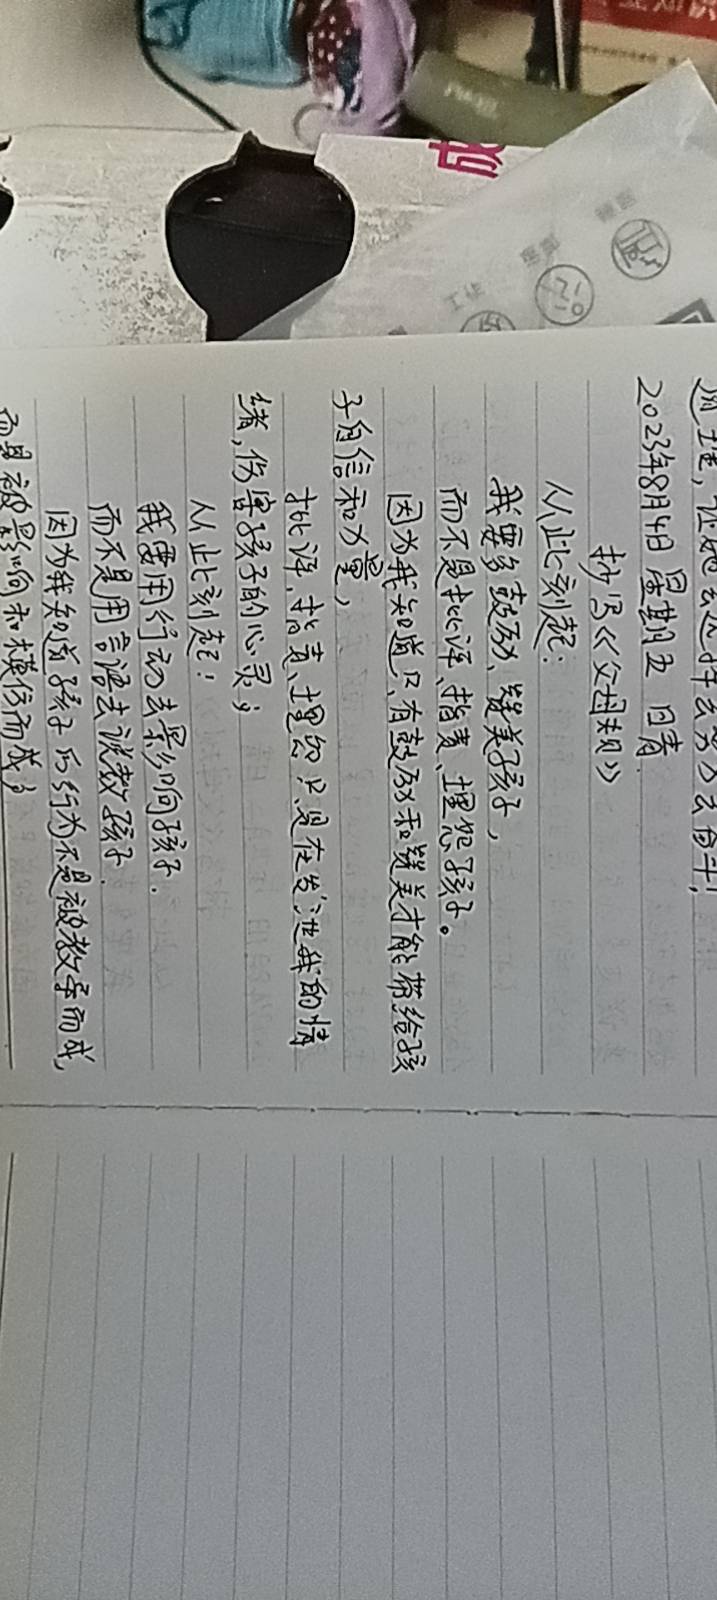 2023年8月4日 星期五 日青
抄写《父母规》
从此刻起：
我要多鼓励、赞美孩子，
而不是批评、指责、埋怨孩子。
因为我知道只有鼓励和赞美才能带给孩
子自信和力量，
批评、指责、埋怨只是在发泄我的情
绪，伤害孩子的心灵；
从此刻起：
我要用行动去影响孩子.
而不是用言语去说教孩子.
因为我知道孩子的行为不是被教导而成，
而是被影响和模仿而成；
成
工作